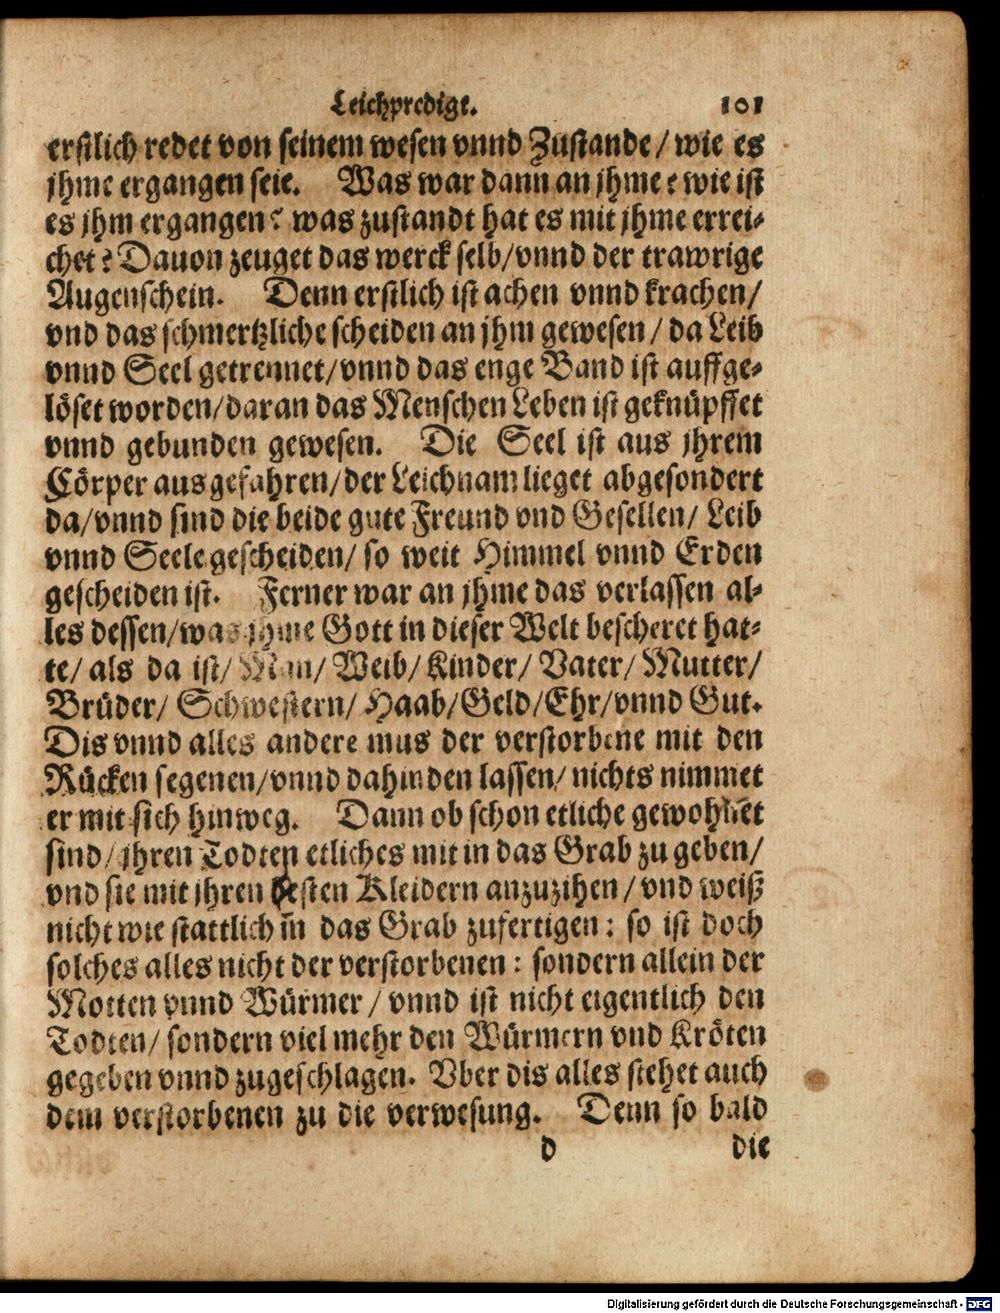 Leichpredigt. 101
erstlich redet von seinem wesen vnnd Zustande / wie es
jhme ergangen seie. Was war dann an jhme ? wie ist
es jhm ergangen ? was zustandt hat es mit jhme errei-
chet ? Dauon zeuget das werck selb / vnnd der trawrige
Augenschein. Denn erstlich ist achen vnnd krachen /
vnd das schmertzliche scheiden an jhm gewesen / da Leib
vnnd Seel getrennet / vnnd das enge Band ist auffge-
löset worden / daran das Menschen Leben ist geknüpffet
vnnd gebunden gewesen. Die Seel ist aus jhrem
Cörper ausgefahren / der Leichnam lieget abgesondert
da / vnnd sind die beide gute Freund vnd Gesellen / Leib
vnnd Seele gescheiden / so weit Himmel vnnd Erden
gescheiden ist. Ferner war an jhme das verlassen al-
les dessen / was jhme Gott in dieser Welt bescheret hat-
te / als da ist / Man / Weib / Kinder / Vater / Mutter /
Brüder / Schwestern / Haab / Geld / Ehr / vnnd Gut.
Dis vnnd alles andere mus der verstorbene mit den
Rücken segenen / vnnd dahinden lassen / nichts nimmet
er mit sich hinweg. Dann ob schon etliche gewohnet
sind / jhren Todten etliches mit in das Grab zu geben /
vnd sie mit jhren besten Kleidern anzuzihen / vnd weiß
nicht wie stattlich in das Grab zufertigen : so ist doch
solches alles nicht der verstorbenen : sondern allein der
Motten vnnd Würmer / vnnd ist nicht eigentlich den
Todten / sondern viel mehr den Würmern vnd Kröten
gegeben vnnd zugeschlagen. Vber dis alles stehet auch
dem verstorbenen zu die verwesung. Denn so bald
d die
Digitalisierung gefördert durch die Deutsche Forschungsgemeinschaft - DFG